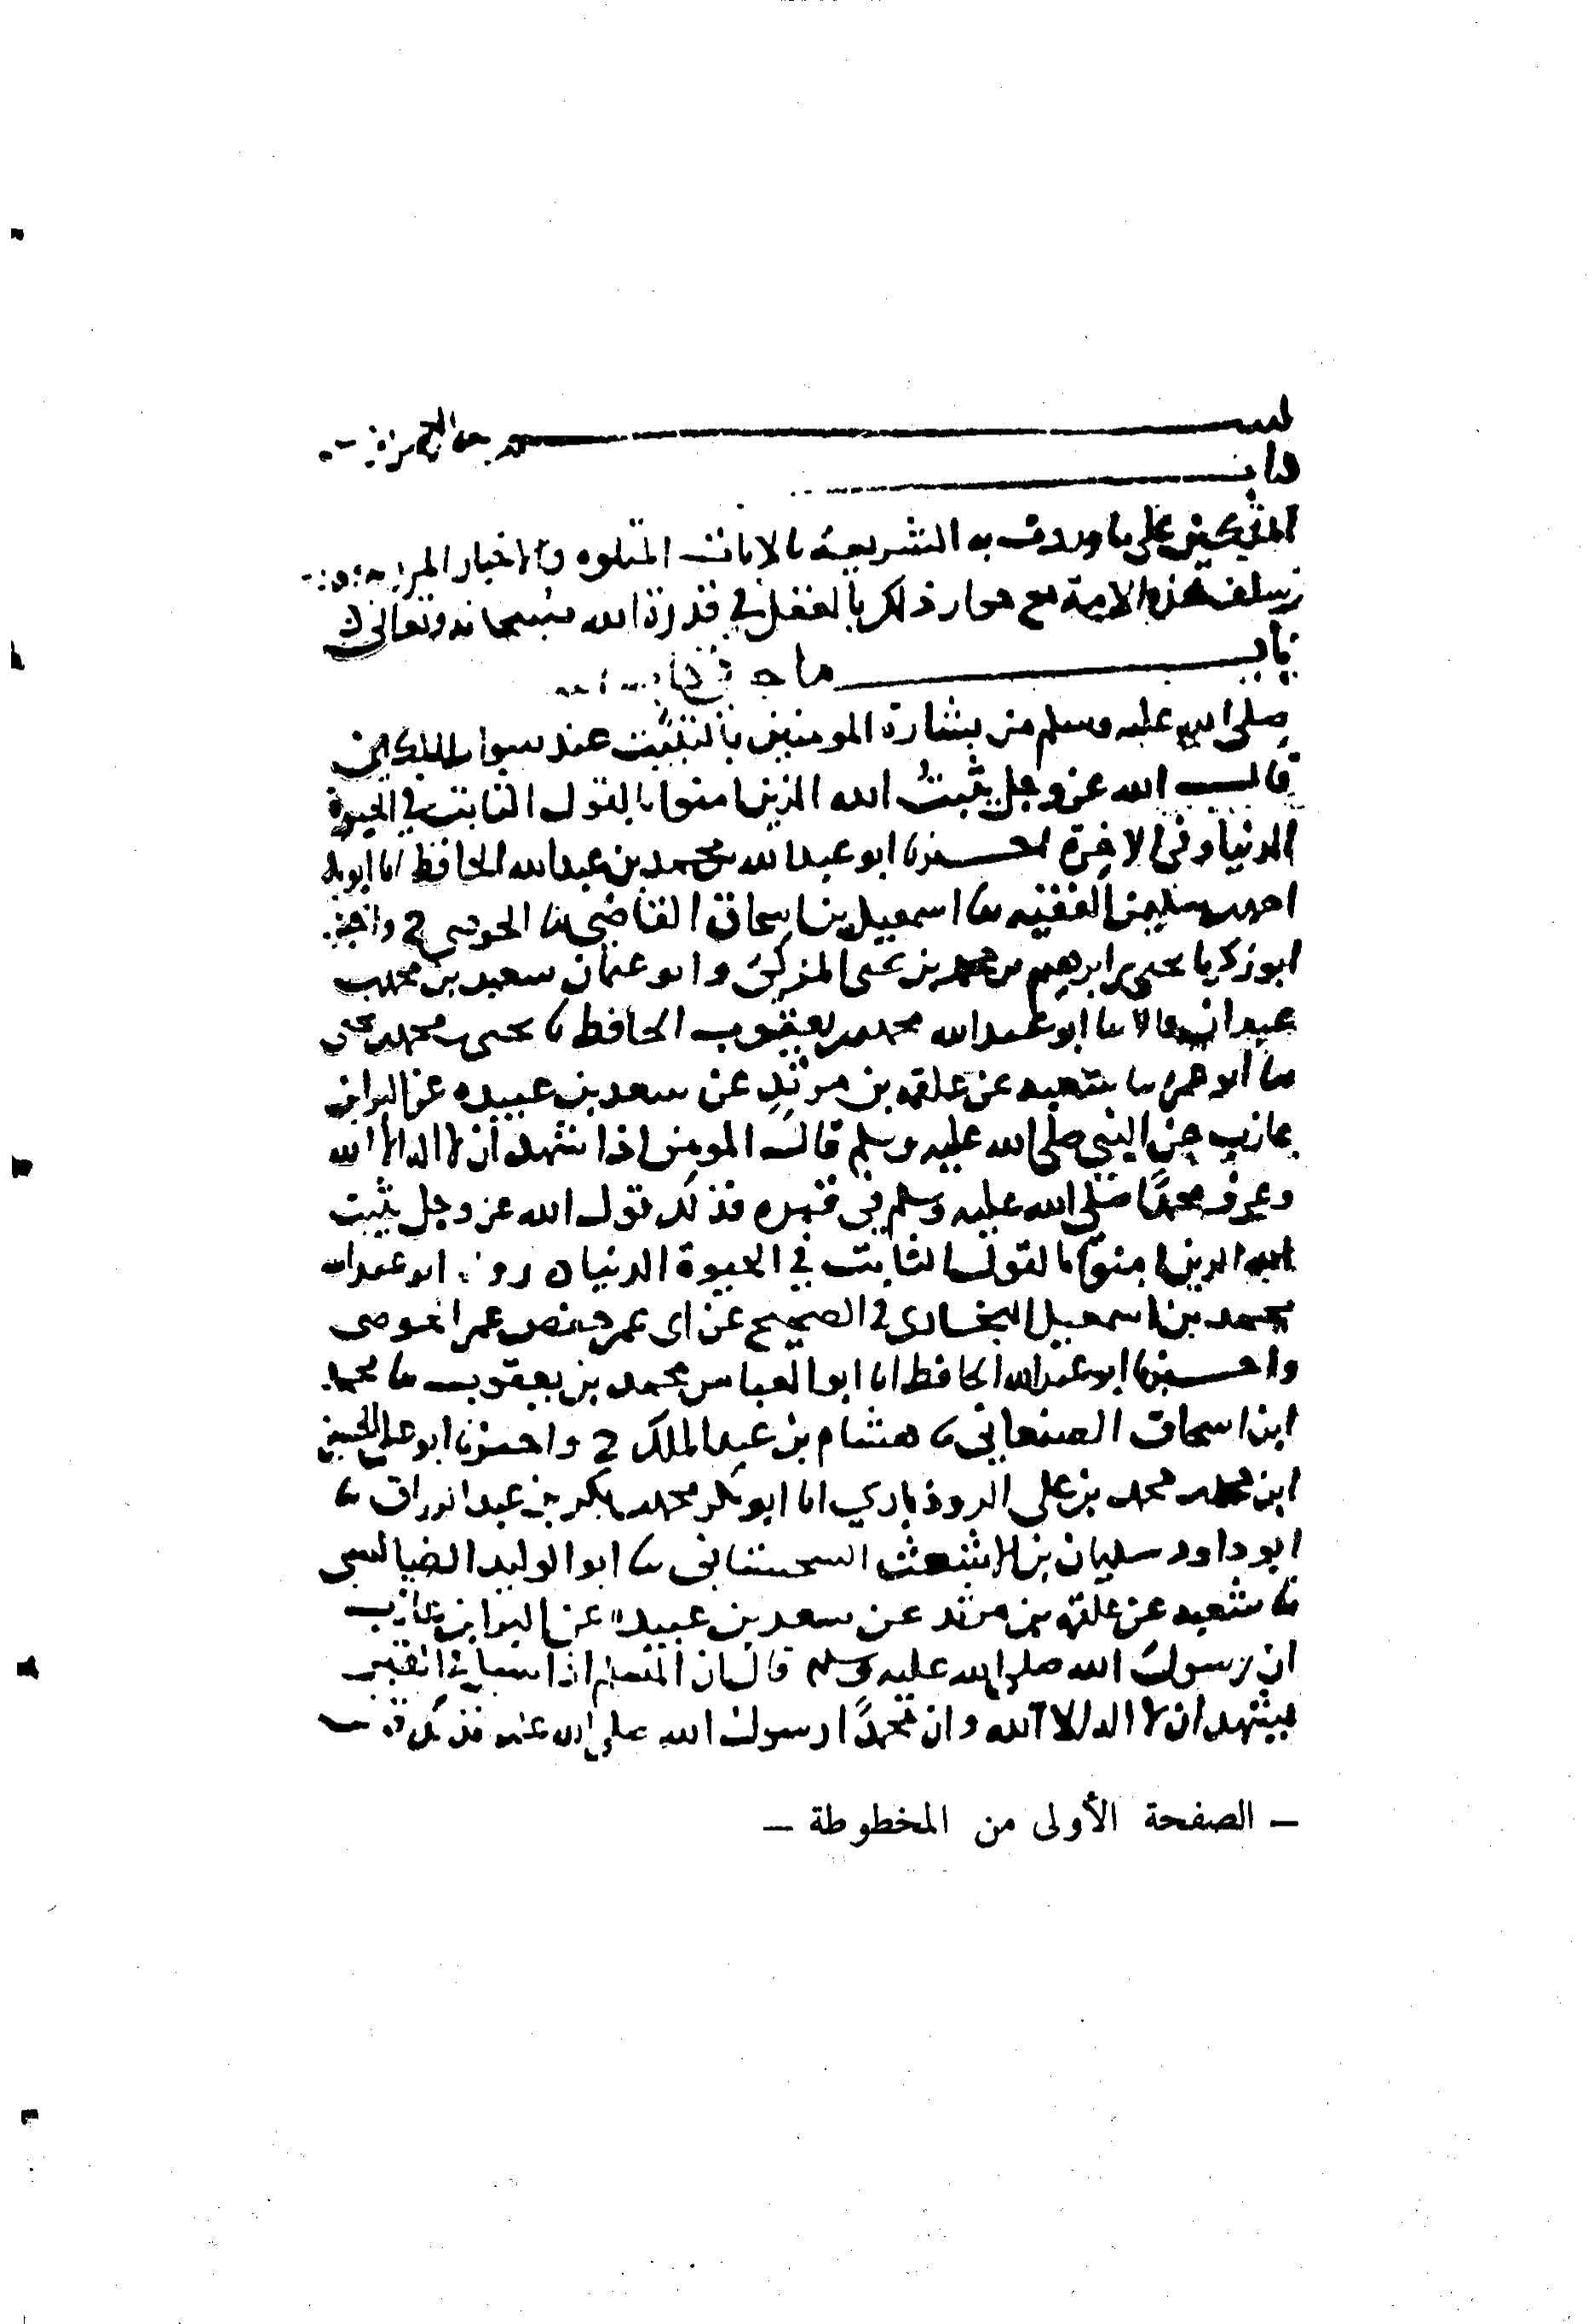 بســـم الله الرحمن
باب
الملكين على ما وردت به الشريعة بالايات المتلوه والاخبار
سلف هذه الامة مع جواز ذلك بالعقل في قدرة الله سبحانه وتعالى
باب ما جا
صلى الله عليه وسلم من بشارة المومنين بالتثبيت عند سوال الملكين
قال الله عز وجل يثبت الله الذين امنوا بالقول الثابت في الحيوة
الدنيا وفي الاخرة اخبرنا ابو عبدالله محمد بن عبدالله الحافظ انا ابو بكر
احمد بن سليمن الفقيه نا اسمعيل بن اسحاق القاضي نا الحوضي ح واخبرنا
ابو زكريا يحيى بن ابرهيم بن محمد بن يحيى المزكي وابو عثمان سعيد بن محمد بن
عبدان قالا نا ابو عبدالله محمد بن يعقوب الحافظ نا يحيى بن محمد بن يحيى
نا ابو عمر نا شعبه عن علقمه بن مرثد عن سعد بن عبيده عن البرا بن
عازب عن النبي صلى الله عليه وسلم قال المومن اذا شهد ان لا اله الا الله
وعرف محمدًا صلى الله عليه وسلم في قبره فذلك قول الله عز وجل يثبت
الله الذين امنوا بالقول الثابت في الحيوة الدنيا رواه ابو عبدالله
محمد بن اسمعيل البخاري في الصحيح عن ابي عمر حفص بن عمر الحوضي
واخبرنا ابو عبدالله الحافظ انا ابو العباس محمد بن يعقوب نا محمد
ابن اسحاق الصنعاني نا هشام بن عبد الملك ح واخبرنا ابو علي الحسين
ابن محمد بن محمد بن علي الروذباري انا ابو بكر محمد بن بكر بن عبد الرزاق نا
ابو داود سليمان بن الاشعث السجستاني نا ابو الوليد الطيالسي
نا شعبه عن علقمه بن مرثد عن سعد بن عبيده عن البرا بن عازب
ان رسول الله صلى الله عليه وسلم قال ان المسلم اذا سيل في القبر
فيشهد ان لا اله الا الله وان محمدًا رسول الله صلى الله عليه فذلك
— الصفحة الأولى من المخطوطة —